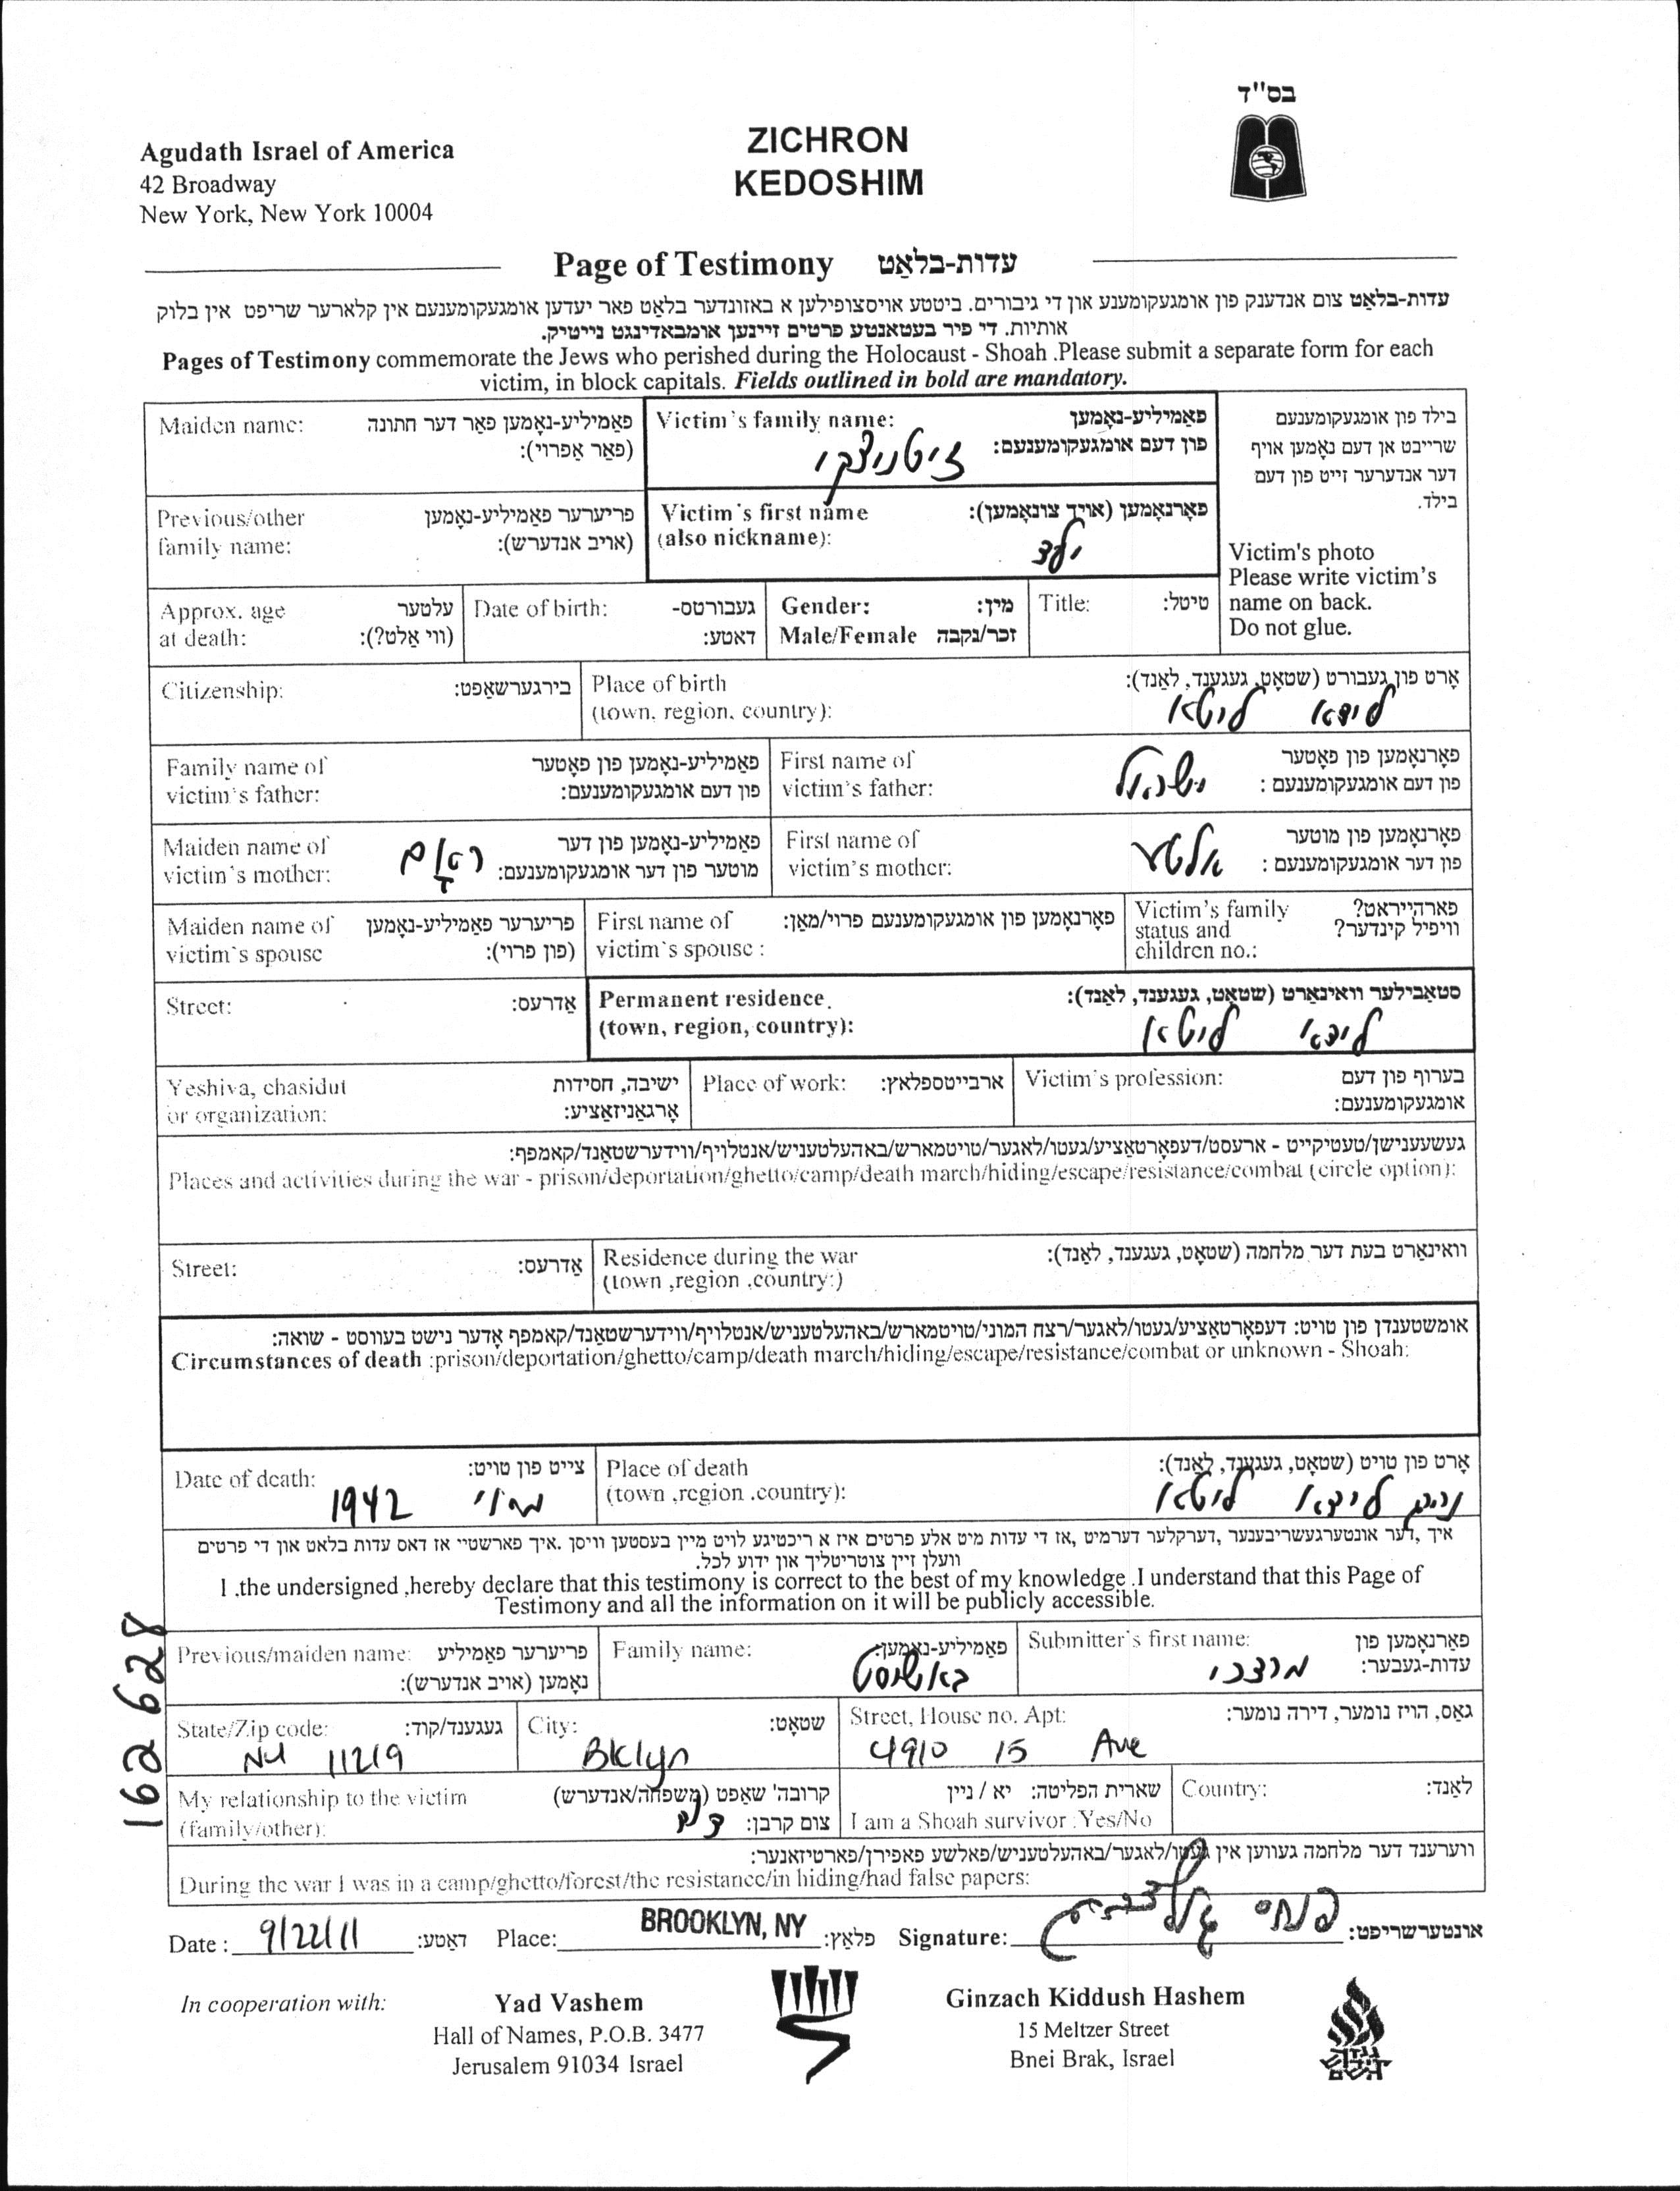 בס"ד
Agudath Israel of America
42 Broadway
New York, New York 10004
ZICHRON
KEDOSHIM
Page of Testimony עדות-בלאַט
עדות-בלאַט צום אנדענק פון אומגעקומענע און די גיבורים. ביטטע אויסצופילען א באזונדער בלאַט פאר יעדען אומגעקומענעם אין קלארער שריפט אין בלוק
אותיות. די פיר בעטאנטע פרטים זיינען אומבאדינגט נייטיק.
Pages of Testimony commemorate the Jews who perished during the Holocaust - Shoah .Please submit a separate form for each
victim, in block capitals. Fields outlined in bold are mandatory.
Maiden name: פאַמיליע-נאָמען פאר דער חתונה
(פאַר אַפרוי):
Victim's family name: פאַמיליע-נאָמען
פון דעם אומגעקומענעם:
זיטניצקי
בילד פון אומגעקומענעם
שרייבט אן דעם נאָמען אויף
דער אנדערער זייט פון דעם
בילד.
Victim's photo
Please write victim's
name on back.
Do not glue.
Previous/other פריערער פאַמיליע-נאָמען
family name: (אויב אנדערש):
Victim's first name פאָרנאָמען (אויך צונאָמען):
(also nickname):
ילד
Approx. age עלטער
at death: (ווי אַלט?):
Date of birth: געבורטס-
דאַטע:
Gender: מין:
Male/Female זכר/נקבה
Title: טיטל:
Citizenship: בירגערשאַפט:
Place of birth אָרט פון געבורט (שטאָט, געגענד, לאַנד):
(town, region, country):
לידא ליטא
Family name of פאַמיליע-נאָמען פון פאָטער
victim's father: פון דעם אומגעקומענעם:
First name of פאָרנאָמען פון פאָטער
victim's father: פון דעם אומגעקומענעם :
ישראל
Maiden name of פאַמיליע-נאָמען פון דער
victim's mother: מוטער פון דער אומגעקומענעם:
First name of פאָרנאָמען פון מוטער
victim's mother: פון דער אומגעקומענעם :
אלטע
Maiden name of פריערער פאַמיליע-נאָמען
victim's spouse (פון פרוי):
First name of פאָרנאָמען פון אומגעקומענעם פרוי/מאַן:
victim's spouse :
Victim's family פארהייראט?
status and וויפיל קינדער?
children no.:
Street: אַדרעס:
Permanent residence סטאַבילער וואינאַרט (שטאָט, געגענד, לאַנד):
(town, region, country):
לידא ליטא
Yeshiva, chasidut ישיבה, חסידות
or organization: אָרגאַניזאַציע:
Place of work: ארבייטספלאץ:
Victim's profession: בערוף פון דעם
אומגעקומענעם:
געשעענישן/טעטיקייט - ארעסט/דעפאָרטאַציע/געטו/לאגער/טויטמארש/באהעלטעניש/אנטלויף/ווידערשטאַנד/קאמפף:
Places and activities during the war - prison/deportation/ghetto/camp/death march/hiding/escape/resistance/combat (circle option):
Street: אַדרעס:
Residence during the war וואינאַרט בעת דער מלחמה (שטאָט, געגענד, לאַנד):
(town ,region .country:)
אומשטענדן פון טויט: דעפאָרטאַציע/געטו/לאגער/רצח המוני/טויטמארש/באהעלטעניש/אנטלויף/ווידערשטאַנד/קאמפף אָדער נישט בעווסט - שואה:
Circumstances of death :prison/deportation/ghetto/camp/death march/hiding/escape/resistance/combat or unknown - Shoah:
Date of death: צייט פון טויט:
מאי 1942
Place of death אָרט פון טויט (שטאָט, געגענד, לאַנד):
(town ,region .country):
לידא ליטא
איך ,דער אונטערגעשריבענער ,דערקלער דערמיט ,אז די עדות מיט אלע פרטים איז א ריכטיגע לויט מיין בעסטען וויסן .איך פארשטיי אז דאס עדות בלאט און די פרטים
וועלן זיין צוטריטליך און ידוע לכל.
I .the undersigned ,hereby declare that this testimony is correct to the best of my knowledge .I understand that this Page of
Testimony and all the information on it will be publicly accessible.
162 628
Previous/maiden name: פריערער פאַמיליע
נאָמען (אויב אנדערש):
Family name: פאַמיליע-נאָמען:
Submitter's first name: פאָרנאָמען פון
עדות-געבער:
מרדכי
State/Zip code: געגענד/קוד:
NY 11219
City: שטאָט:
Bklyn
Street, House no. Apt: גאַס, הויז נומער, דירה נומער:
4910 15 Ave
My relationship to the victim קרובה' שאָפט (משפחה/אנדערש)
(family/other): צום קרבן:
שארית הפליטה: יא / ניין
I am a Shoah survivor :Yes/No
Country: לאַנד:
ווערענד דער מלחמה געווען אין געטו/לאגער/באהעלטעניש/פאלשע פאפירן/פארטיזאנער:
During the war I was in a camp/ghetto/forest/the resistance/in hiding/had false papers:
Date : 9/22/11 דאַטע: Place: BROOKLYN, NY פלאַץ: Signature: פנחס אונטערשריפט:
In cooperation with:
Yad Vashem
Hall of Names, P.O.B. 3477
Jerusalem 91034 Israel
Ginzach Kiddush Hashem
15 Meltzer Street
Bnei Brak, Israel